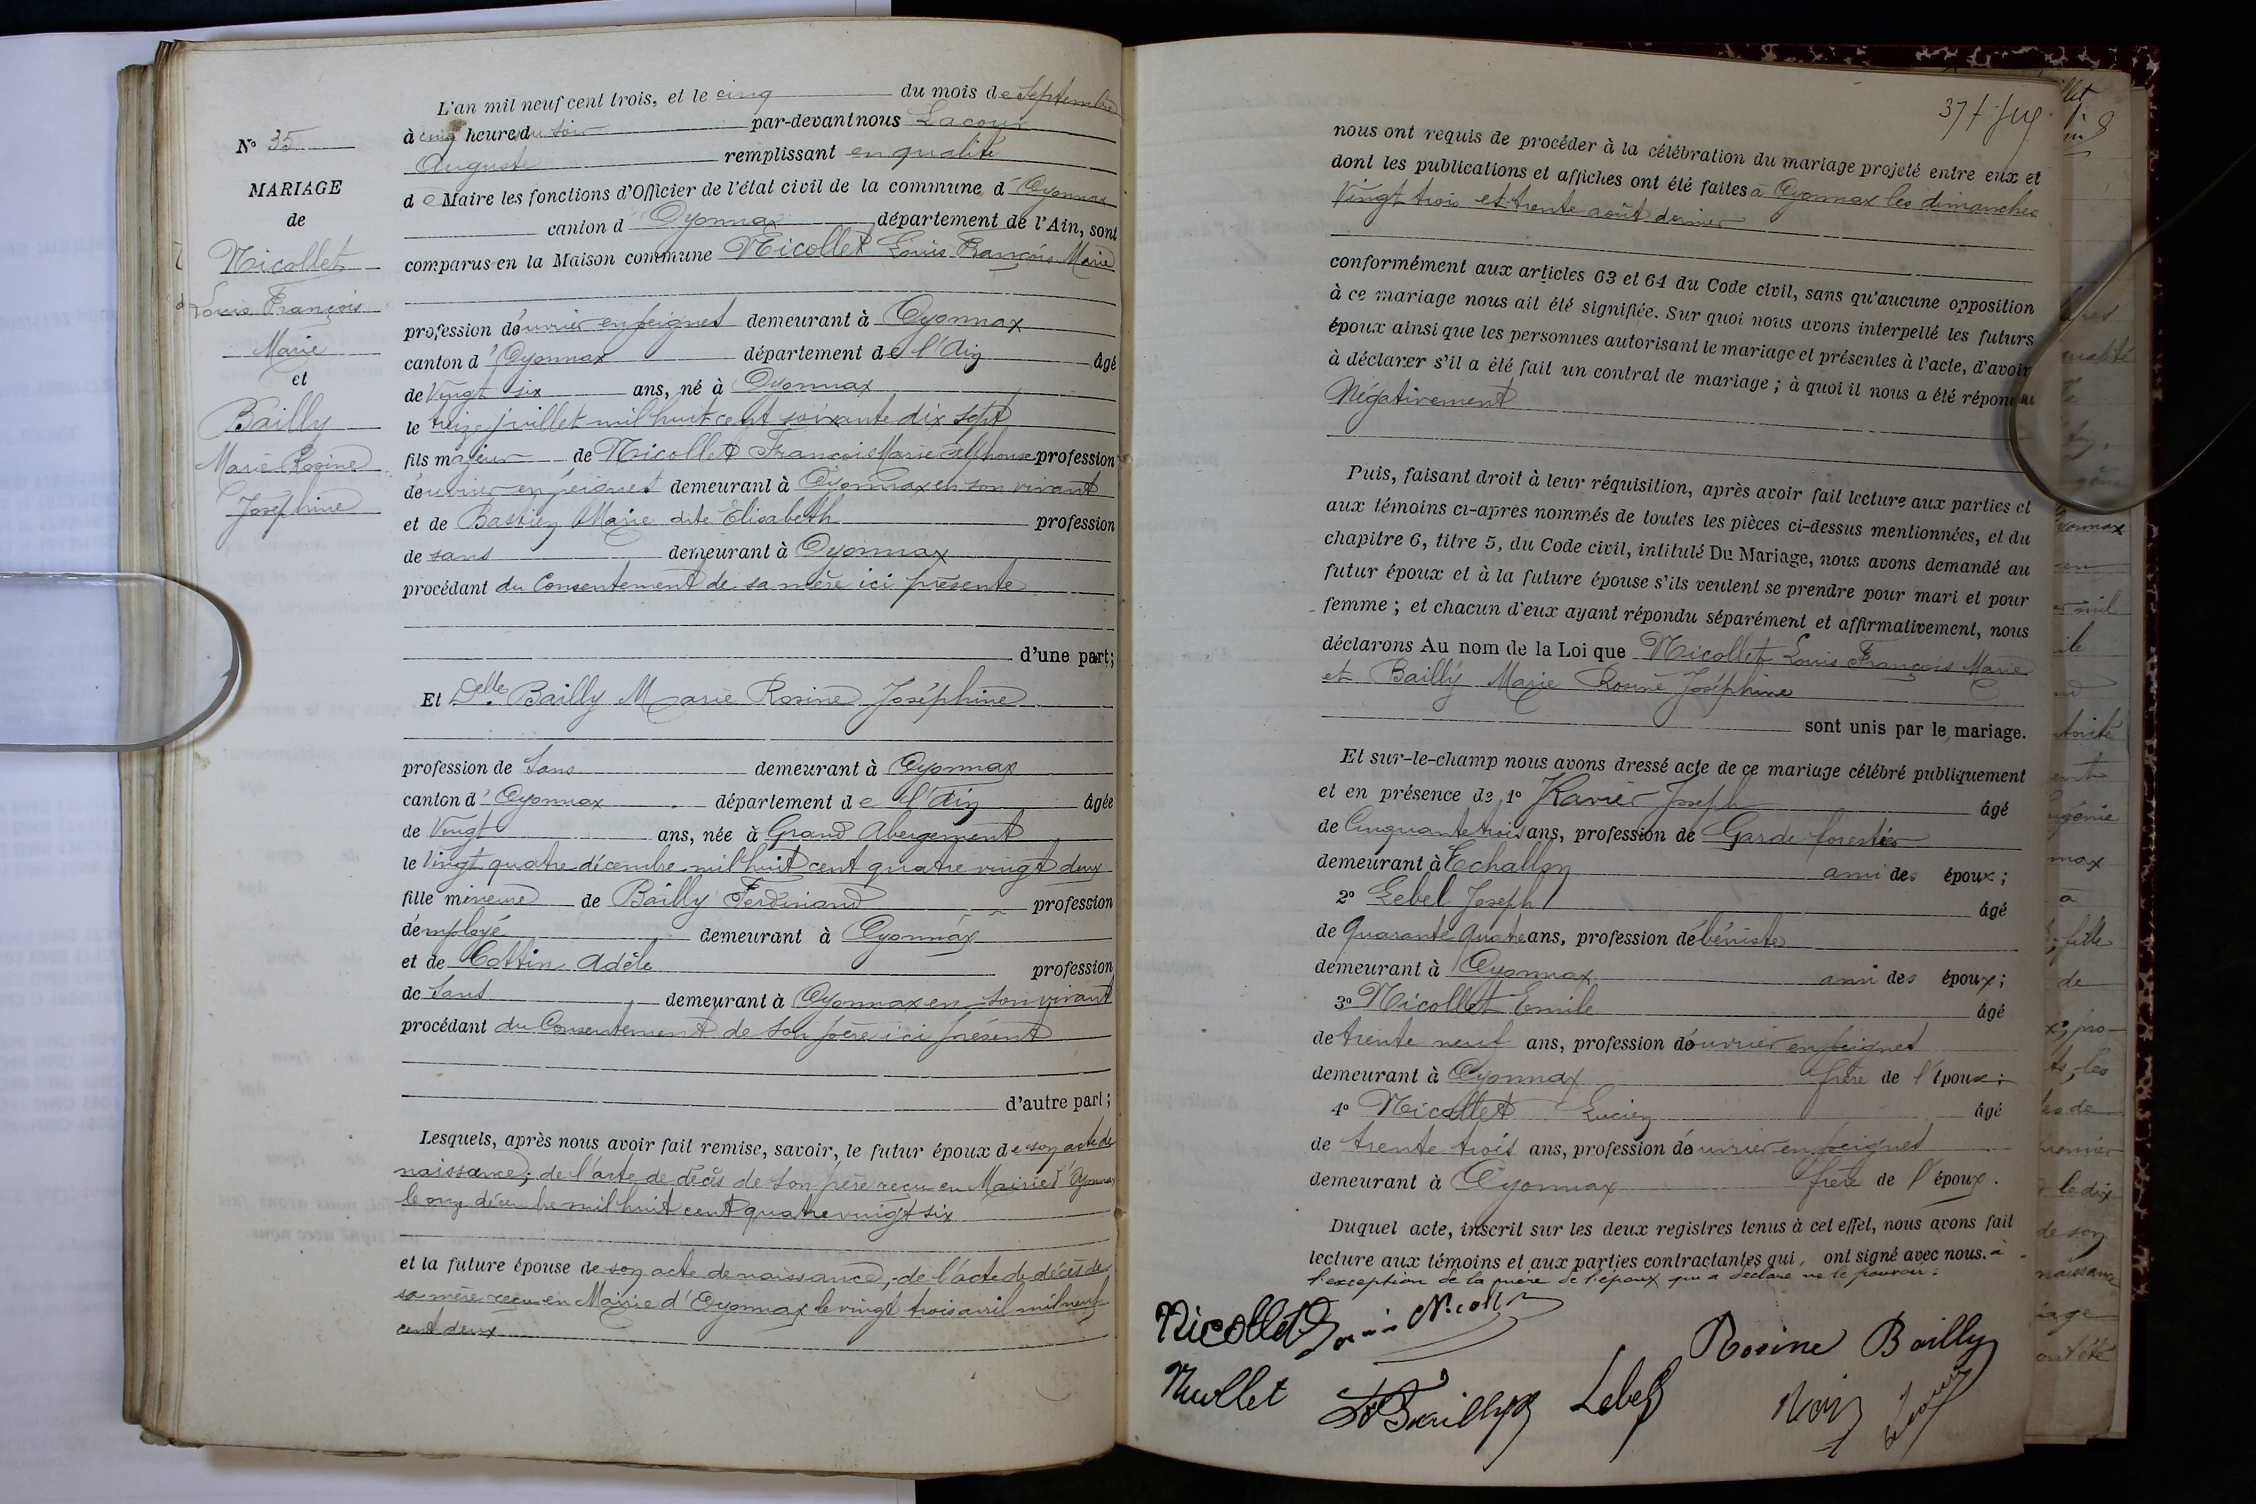 L'an mil neuf cent trois, et le cinq du mois de Septembre
à cinq heure du soir par-devant nous Lacour
Auguste remplissant en qualité
de Maire les fonctions d'Officier de l'état civil de la commune d'Oyonnax
canton d'Oyonnax département de l'Ain, sont
comparus en la Maison commune Nicollet Louis François Marie
profession d'ouvrier en peignes demeurant à Oyonnax
canton d'Oyonnax département de l'Ain âgé
de Vingt six ans, né à Oyonnax
le treize juillet mil huit cent soixante dix sept
fils majeur de Nicollet François Marie Alphonse profession
d'ouvrier en peignes demeurant à Oyonnax en son vivant
et de Bastien Marie dite Elisabeth profession
de sans demeurant à Oyonnax
procédant du Consentement de sa mère ici présente
d'une part;
Et Delle Bailly Marie Rosine Joséphine
profession de Sans demeurant à Oyonnax
canton d'Oyonnax département de l'Ain âgée
de Vingt ans, née à Grand Abergement
le Vingt quatre décembre mil huit cent quatre vingt deux
fille mineure de Bailly Ferdinand profession
d'employé demeurant à Oyonnax
et de Cottin Adèle profession
de Sans demeurant à Oyonnax en son vivant
procédant du Consentement de son père ici présent
d'autre part;
Lesquels, après nous avoir fait remise, savoir, le futur époux de son acte de
naissance; de l'acte de décès de son père reçu en Mairie d'Oyonnax
le onze décembre mil huit cent quatre vingt six
et la future épouse de son acte de naissance, de l'acte de décès de
sa mère reçu en Mairie d'Oyonnax le vingt trois avril mil neuf
cent deux
N° 35
MARIAGE
de
Nicollet
Louis François
Marie
et
Bailly
Marie Rosine
Joséphine
37
nous ont requis de procéder à la célébration du mariage projeté entre eux et
dont les publications et affiches ont été faites à Oyonnax les dimanches
Vingt trois et trente août dernier
conformément aux articles 63 et 64 du Code civil, sans qu'aucune opposition
à ce mariage nous ait été signifiée. Sur quoi nous avons interpellé les futurs
époux ainsi que les personnes autorisant le mariage et présentes à l'acte, d'avoir
à déclarer s'il a été fait un contrat de mariage; à quoi il nous a été répondu
Négativement
Puis, faisant droit à leur réquisition, après avoir fait lecture aux parties et
aux témoins ci-après nommés de toutes les pièces ci-dessus mentionnées, et du
chapitre 6, titre 5, du Code civil, intitulé Du Mariage, nous avons demandé au
futur époux et à la future épouse s'ils veulent se prendre pour mari et pour
femme; et chacun d'eux ayant répondu séparément et affirmativement, nous
déclarons Au nom de la Loi que Nicollet Louis François Marie
et Bailly Marie Rosine Joséphine
sont unis par le mariage.
Et sur-le-champ nous avons dressé acte de ce mariage célébré publiquement
et en présence de, 1° Xavier Joseph âgé
de Cinquante trois ans, profession de Garde forestier
demeurant à Echallon ami des époux;
2° Lebel Joseph âgé
de Quarante quatre ans, profession d'ébéniste
demeurant à Oyonnax ami des époux;
3° Nicollet Emile âgé
de trente neuf ans, profession d'ouvrier en peignes
demeurant à Oyonnax frère de l'époux;
4° Nicollet Lucien âgé
de trente trois ans, profession d'ouvrier en peignes
demeurant à Oyonnax frère de l'époux.
Duquel acte, inscrit sur les deux registres tenus à cet effet, nous avons fait
lecture aux témoins et aux parties contractantes qui, ont signé avec nous. à
l'exception de la mère de l'époux qui a déclaré ne le pouvoir.
Nicollet Nicollet
Rosine Bailly
Nicollet Bailly Lebel